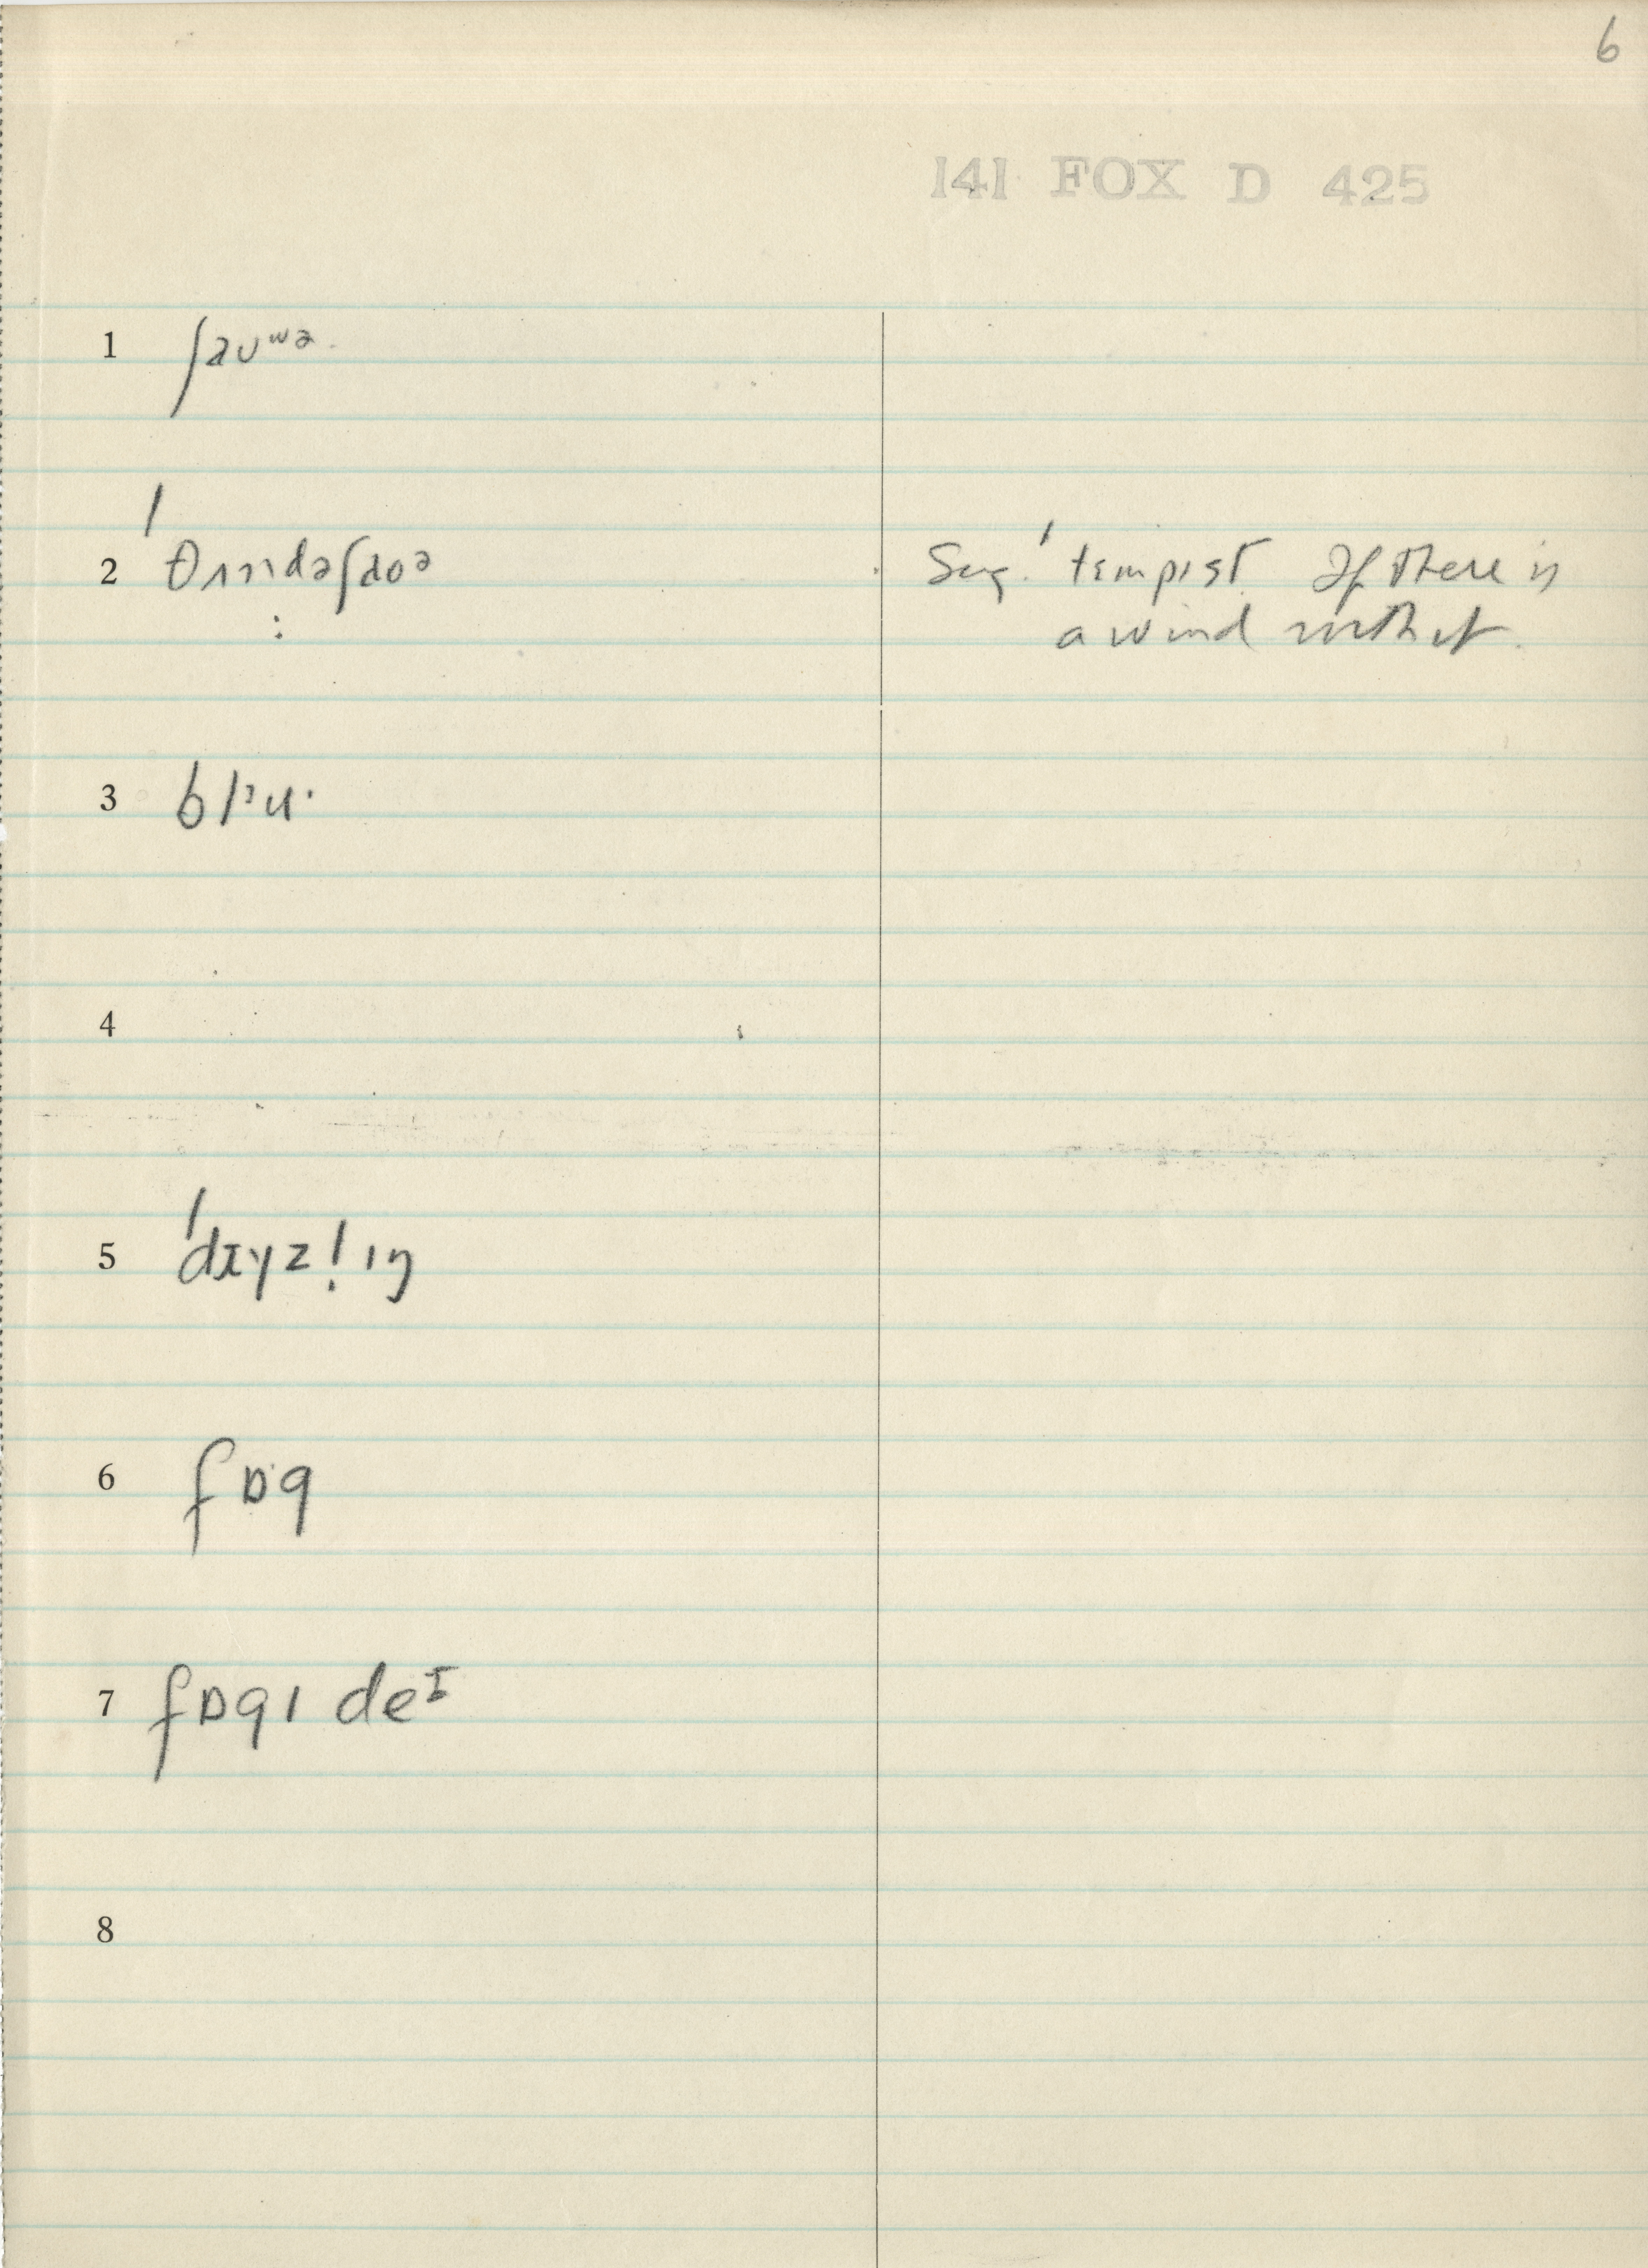 6
141 FOX D 425
1 ʃaʊʷᵊ
2
Sug. 'tɛmpɪst. If there is
a wind with it.
3
4
5
6 fɒg
7 fɒgɪ deᴵ
8